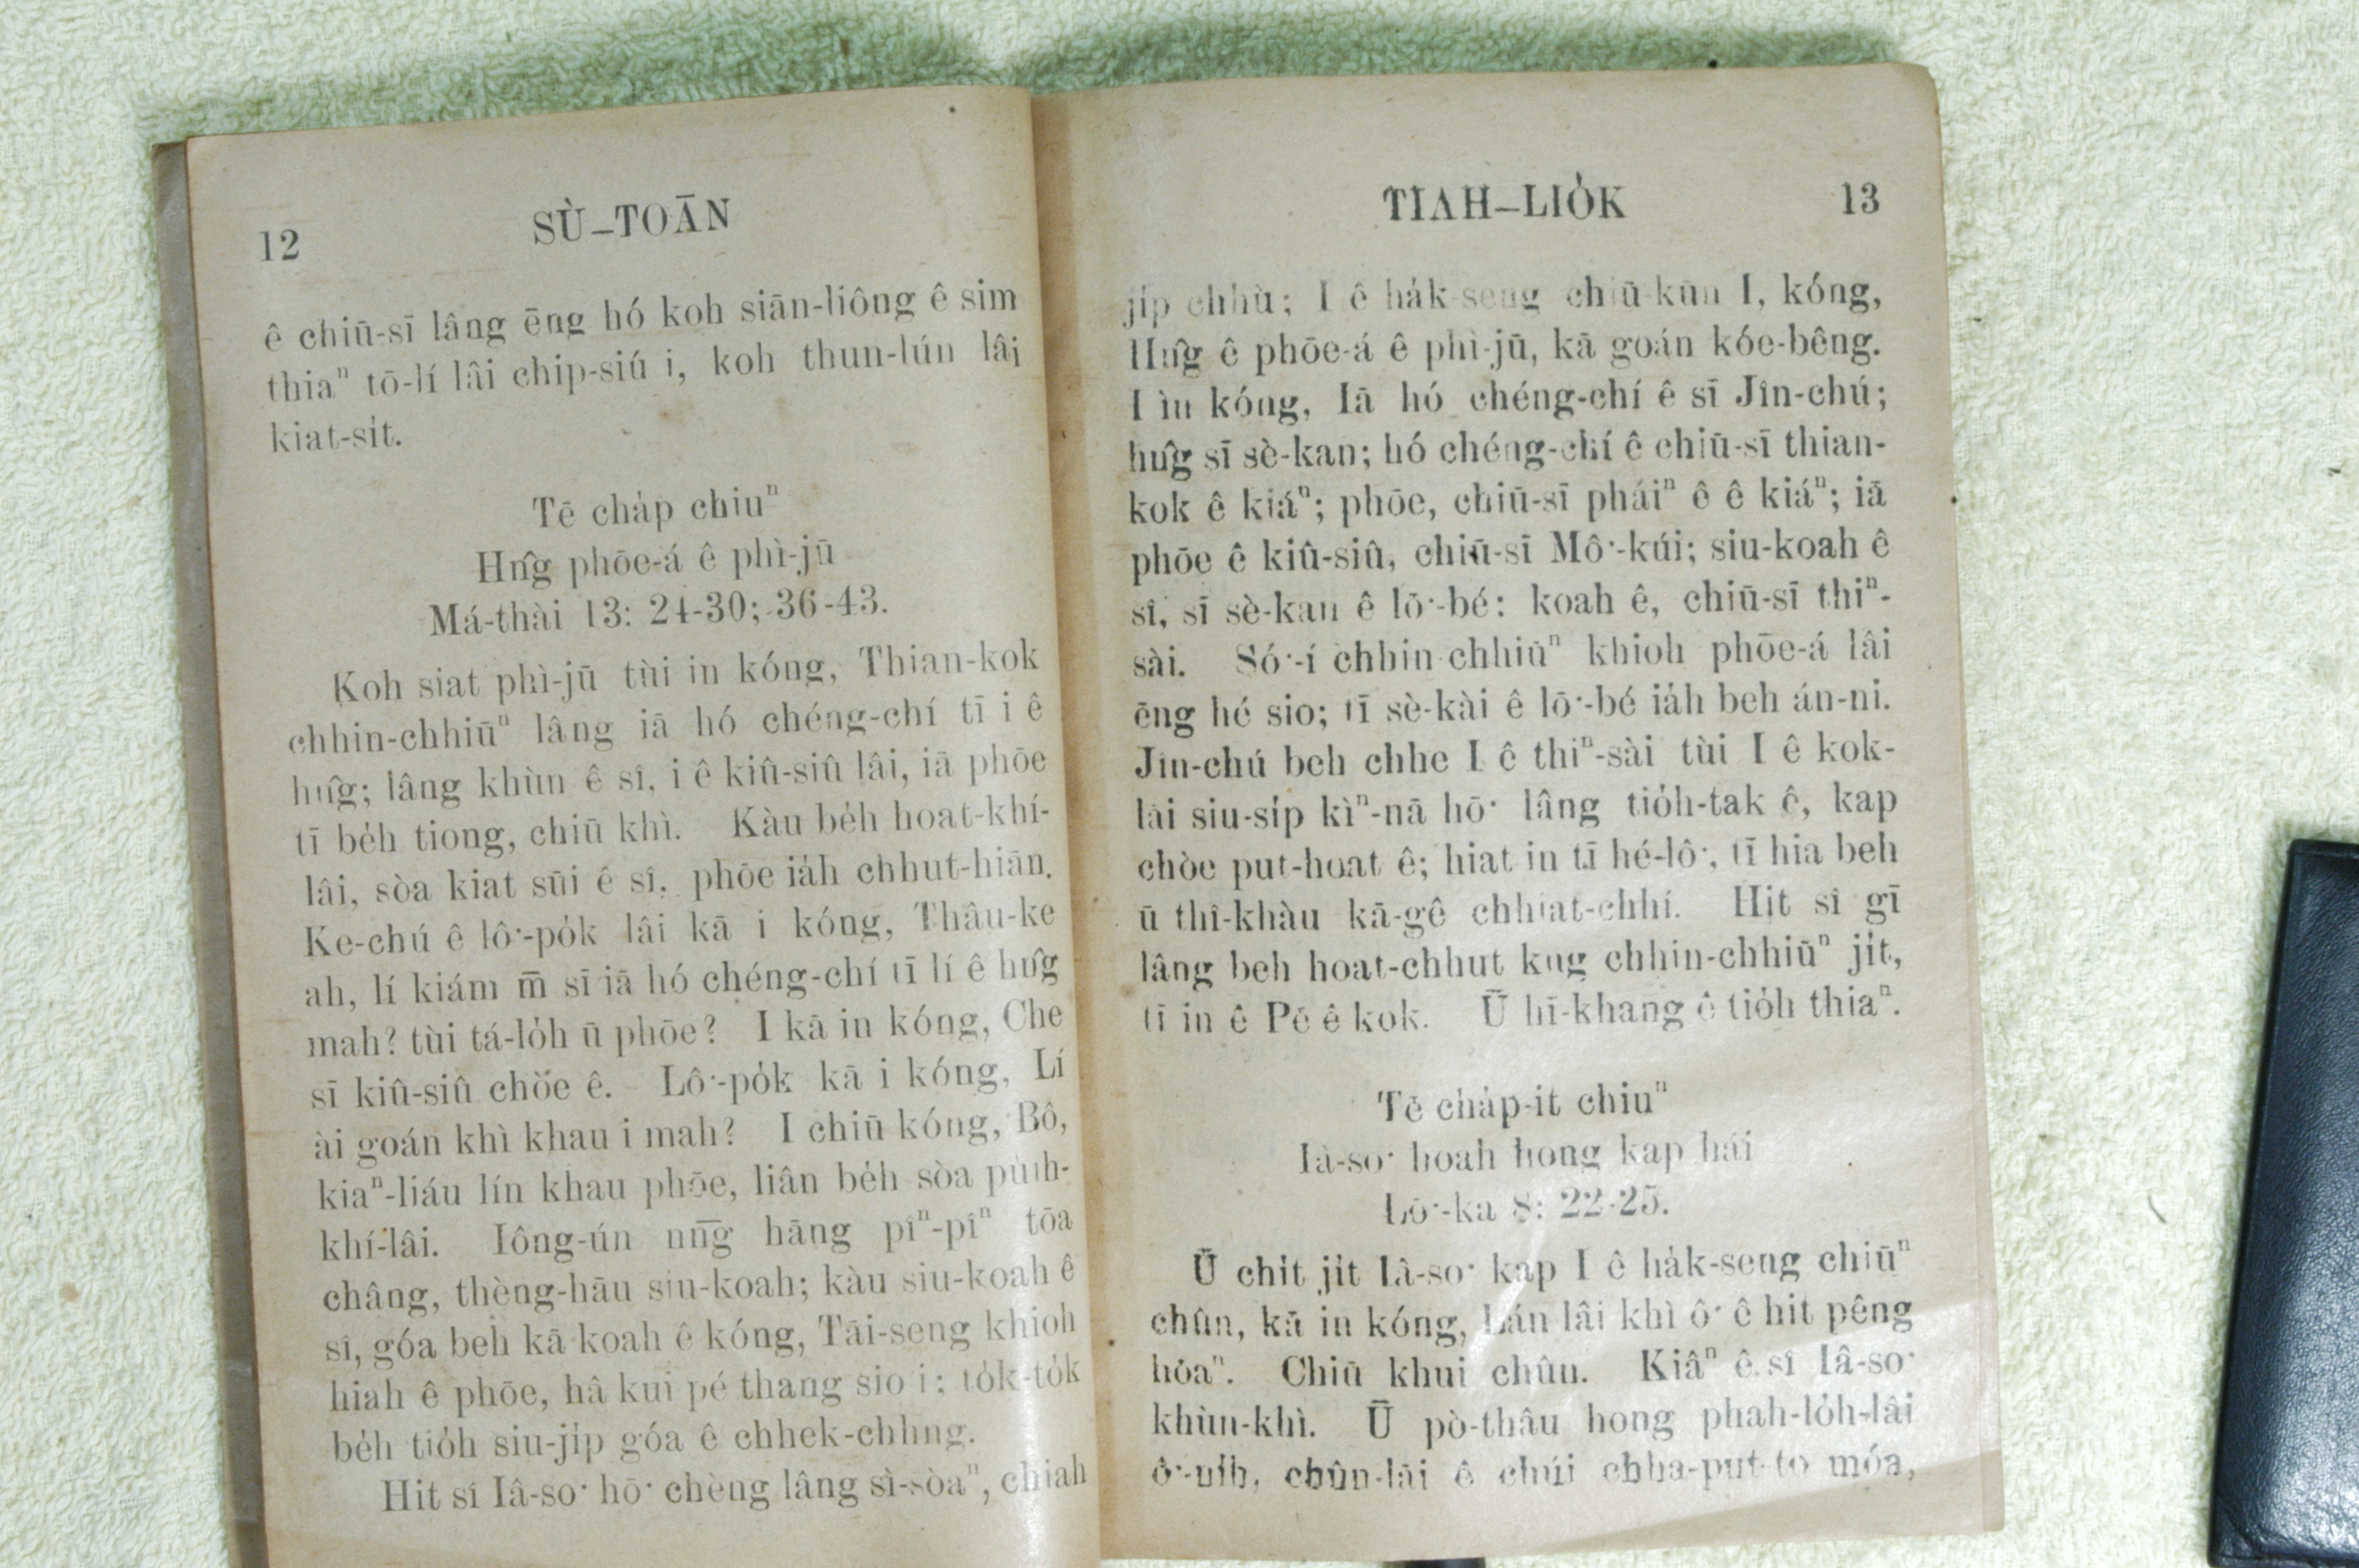 12
SÙ–TOĀN
ê chiū-sī lâng ēng hó koh siān-liông ê sim
thiaⁿ tō-lí lâi chip-siú i, koh thun-lún lâi
kiat-sit.
Tē cha̍p chiuⁿ
Hn̂g phōe-á ê phì-jū
Má-thài 13: 24-30; 36-43.
Koh siat phì-jū tùi in kóng, Thian-kok
chhin-chhiūⁿ lâng iā hó chéng-chí tī i ê
hn̂g; lâng khùn ê sî, i ê kiû-siû lâi, iā phōe
tī be̍h tiong, chiū khì. Kàu be̍h hoat-khí-
lâi, sòa kiat sūi ê sî, phōe ia̍h chhut-hiān.
Ke-chú ê lô͘-po̍k lâi kā i kóng, Thâu-ke
ah, lí kiám m̄ sī iā hó chéng-chí tī lí ê hn̂g
mah? tùi tá-lo̍h ū phōe? I kā in kóng, Che
sī kiû-siû chòe ê. Lô͘-po̍k kā i kóng, Lí
ài goán khì khau i mah? I chiū kóng, Bô,
kiaⁿ-liáu lín khau phōe, liân be̍h sòa pu̍ih-
khí-lâi. Iông-ún nn̄g hāng pîⁿ-pîⁿ tōa
châng, thèng-hāu siu-koah; kàu siu-koah ê
sî, góa beh kā koah ê kóng, Tāi-seng khioh
hiah ê phōe, hâ kui pé thang sio i: to̍k-to̍k
be̍h tio̍h siu-ji̍p góa ê chhek-chhng.
Hit sî Iâ-so͘ hō͘ chèng lâng sì-sòaⁿ, chiah
TIAH–LIO̍K
13
ji̍p chhù; I ê ha̍k-seng chiū-kūn I, kóng,
Hn̂g ê phōe-á ê phì-jū, kā goán kóe-bêng.
I ìn kóng, Iā hó chéng-chí ê sī Jîn-chú;
hn̂g sī sè-kan; hó chéng-chí ê chiū-sī thian-
kok ê kiáⁿ; phōe, chiū-sī pháiⁿ ê ê kiáⁿ; iā
phōe ê kiû-siû, chiū-sī Mô͘-kúi; siu-koah ê
sî, sī sè-kan ê lō͘-bé: koah ê, chiū-sī thiⁿ-
sài. Só͘-í chhin-chhiūⁿ khioh phōe-á lâi
ēng hé sio; tī sè-kài ê lō͘-bé ia̍h beh án-ni.
Jîn-chú beh chhe I ê thiⁿ-sài tùi I ê kok-
lāi siu-si̍p kìⁿ-nā hō͘ lâng tio̍h-tak ê, kap
chòe put-hoat ê; hiat in tī hé-lô͘, tī hia beh
ū thî-khàu kā-gê chhiat-chhí. Hit sî gī
lâng beh hoat-chhut kng chhin-chhiūⁿ ji̍t,
tī in ê Pē ê kok. Ū hī-khang ê tio̍h thiaⁿ.
Tē cha̍p-it chiuⁿ
Iâ-so͘ hoah hong kap hái
Lō͘-ka 8: 22-25.
Ū chi̍t ji̍t Iâ-so͘ kap I ê ha̍k-seng chiūⁿ
chûn, kā in kóng, Lán lâi khì ô͘ ê hit pêng
hōaⁿ. Chiū khui chûn. Kiâⁿ ê sî Iâ-so͘
khùn-khì. Ū pò-thâu hong phah-lo̍h-lâi
ô͘-ni̍h, chûn-lāi ê chúi chha-put-to móa,